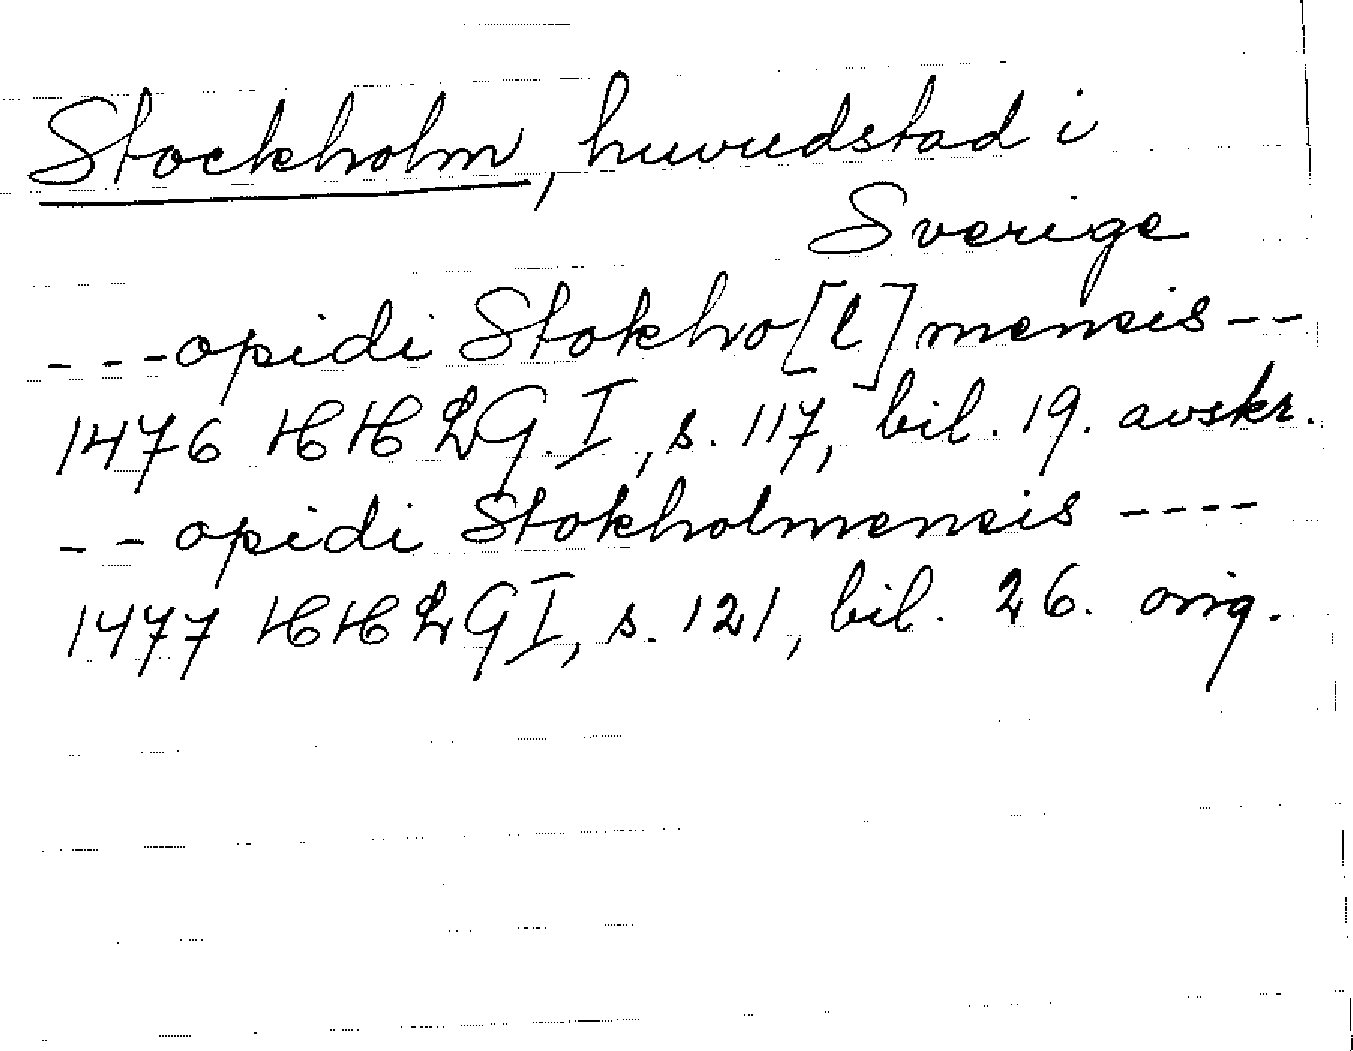 Stockholm, huvudstad i
Sverige
- - -opidi Stokho[l]mensis--
1476 HHLG. I, s. 117, bil. 19. avskr.
- - opidi Stokholmensis ----
1477 HHLG I, s. 121, bil. 26. orig.